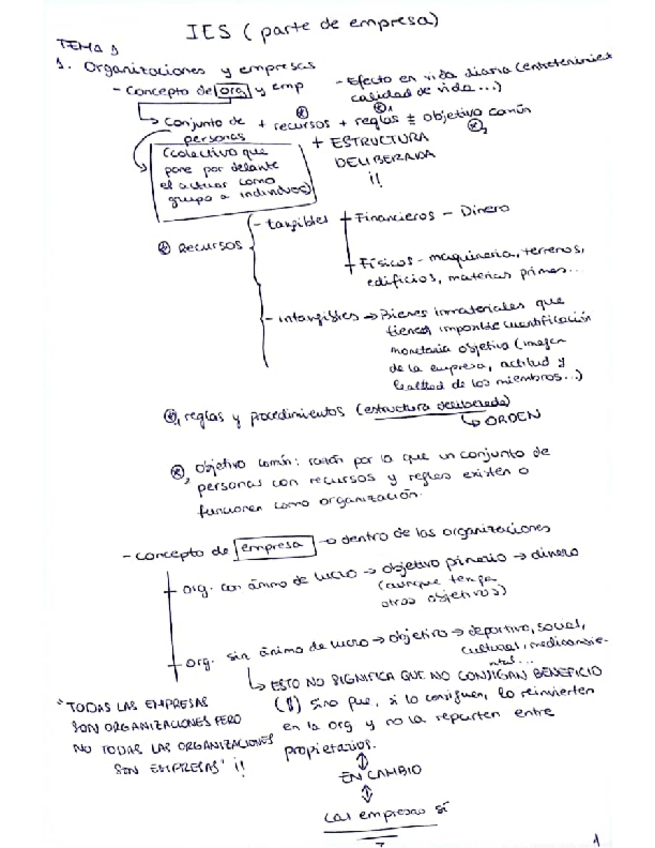 IES (parte de empresa)
TEMA 1
1. Organizaciones y empresas
- Concepto de org. y emp
- Efecto en vida diaria (entretenimiento
calidad de vida...)
Conjunto de personas + recursos + reglas ± objetivo común
(colectivo que
pone por delante
el actuar como
grupo a individuos)
+ ESTRUCTURA
DELIBERADA
¡!
* Recursos
- tangibles
+ Financieros - Dinero
+ Físicos - maquinaria, terrenos,
edificios, materias primas...
- intangibles → Bienes inmateriales que
tienen imposible cuantificación
monetaria objetiva (imagen
de la empresa, actitud y
lealtad de los miembros...)
*1 reglas y procedimientos (estructura deliberada)
↳ ORDEN
*2 objetivo común: razón por la que un conjunto de
personas con recursos y reglas existen o
funcionen como organización.
- concepto de empresa → dentro de las organizaciones
+ org. con ánimo de lucro → objetivo → dinero
(aunque tenga
otros objetivos)
+ org. sin ánimo de lucro → objetivo → deportivo, social,
cultural, medioambie-
ntal...
↳ ESTO NO SIGNIFICA QUE NO CONSIGAN BENEFICIO
($) sino que, si lo consiguen, lo reinvierten
en la org y no la reparten entre
propietarios.
"TODAS LAS EMPRESAS
SON ORGANIZACIONES PERO
NO TODAS LAS ORGANIZACIONES
SON EMPRESAS" ¡!
EN CAMBIO
Las empresas sí
1